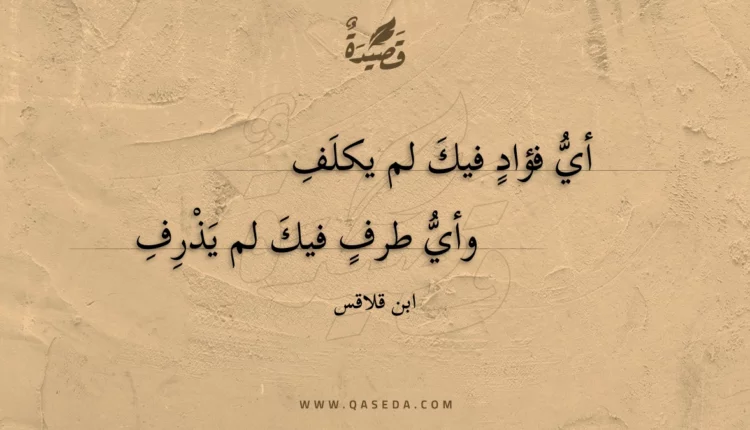 قَصِيْدَةٌ
أيُّ فؤادٍ فيكَ لم يكلَفِ
وأيُّ طرفٍ فيكَ لم يَذْرِفِ
ابن قلاقس
WWW.QASEDA.COM